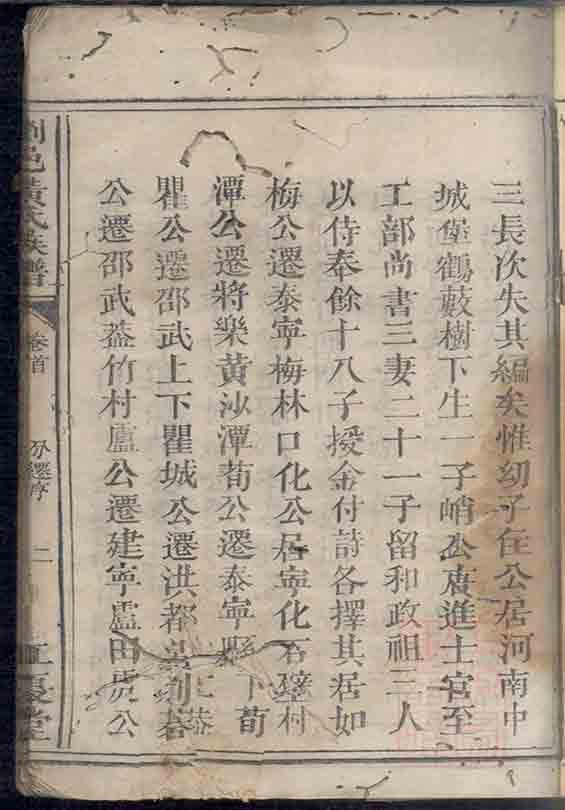 三長次失其編矣惟幼子在公居河南中
城堡鶴藪樹下生一子峭公廣進士官至
工部尚書三妻二十一子留和政祖三人
以侍奉餘十八子授金付詩各擇其居如
梅公遷泰寧梅林口化公居寧化石壁村
潭公遷將樂黃沙潭荀公遷泰寧縣下荀
瞿公遷邵武上下瞿城公遷洪都
公遷邵武蓋竹村盧公遷建寧盧田虎公
邑黃氏族譜
卷首
分遷序
二
江夏堂